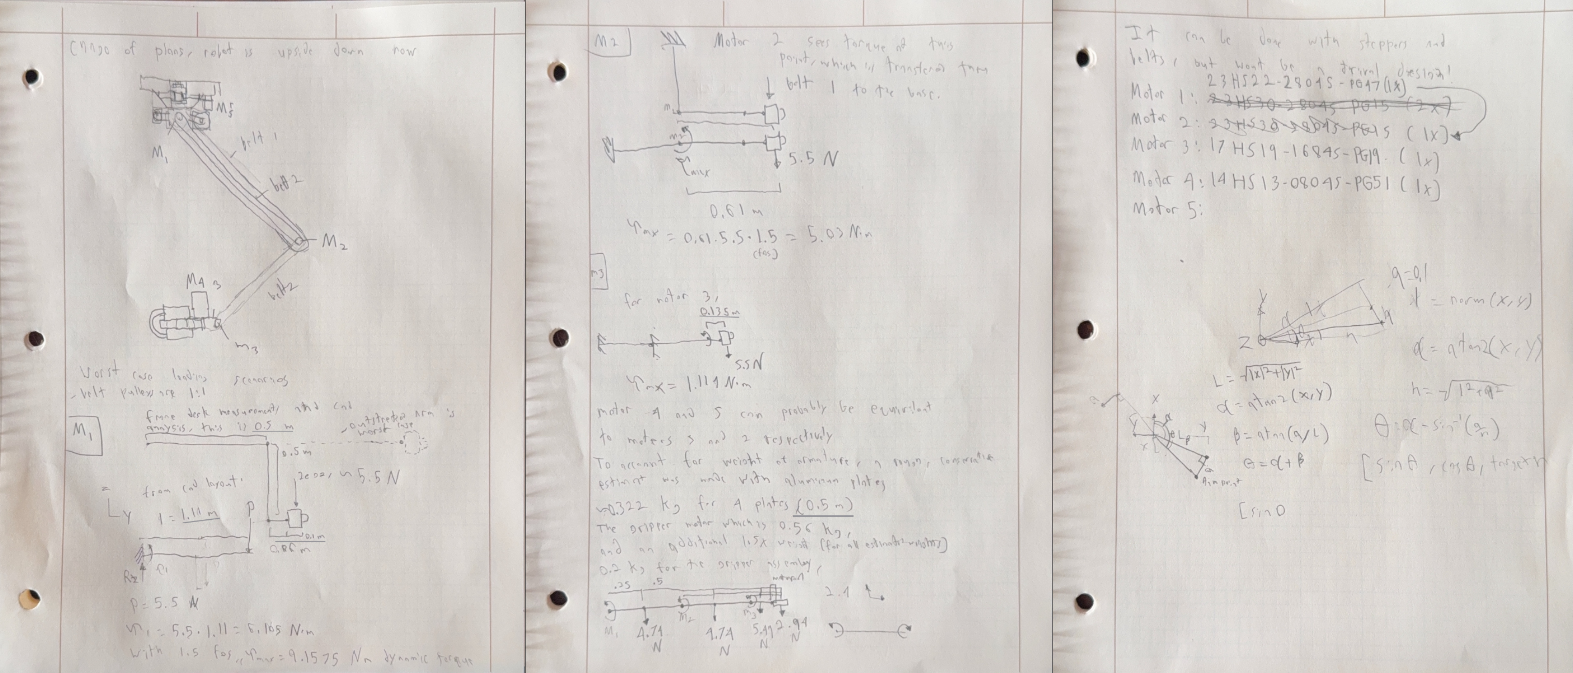 Change of plans, robot is upside down now
M5
M1
belt 1
belt 2
M2
M4
belt2
m3
Worst case loading scenarios
- belt pulleys are 1:1
M1
from desk measurements and cad
analysis, this is 0.5 m
outstretched arm is
worst case
0.5m
5.5 N
from cad layout:
y
l = 1.11 m
P
P = 5.5 N
= 5.5 · 1.11 = 6.105 N·m
with 1.5 fos, τmax = 9.1575 Nm dynamic torque
M2
Motor 2 sees torque at this
point, which is transferred thru
belt 1 to the base.
τmax
5.5 N
0.61 m
τmax = 0.61·5.5·1.5 = 5.03 N·m
(fos)
m3
for motor 3,
0.135m
5.5N
τmax = 1.114 N·m
motor 4 and 5 can probably be equivalent
to motors 3 and 2 respectively
To account for weight of armature, a rough, conservative
estimate was made with aluminum plates
~0.322 kg for 4 plates (0.5m)
The gripper motor which is 0.56 kg,
and an additional 1.5x weight [for all estimates]
0.2 kg for the gripper assembly,
.25
.5
M1
4.74
N
M2
4.74
N
M3
2.94
N
2.4
It can be done with steppers and
belts, but wont be a trivial design!
Motor 1: 23HS22-2804S-PG47 (1x)
Motor 2: (1x)
Motor 3: 17HS19-1684S-PG19. (1x)
Motor 4: 14HS13-0804S-PG51 (1x)
Motor 5:
a=0.1
l = norm(x,y)
α = atan2(x,y)
h = √l²+a²
θ = α - sin⁻¹(a/h)
L = √|x|²+|y|²
α = atan2(x,y)
β = atan(a/L)
θ = α + β
[sin θ, cos θ, target
[sin θ